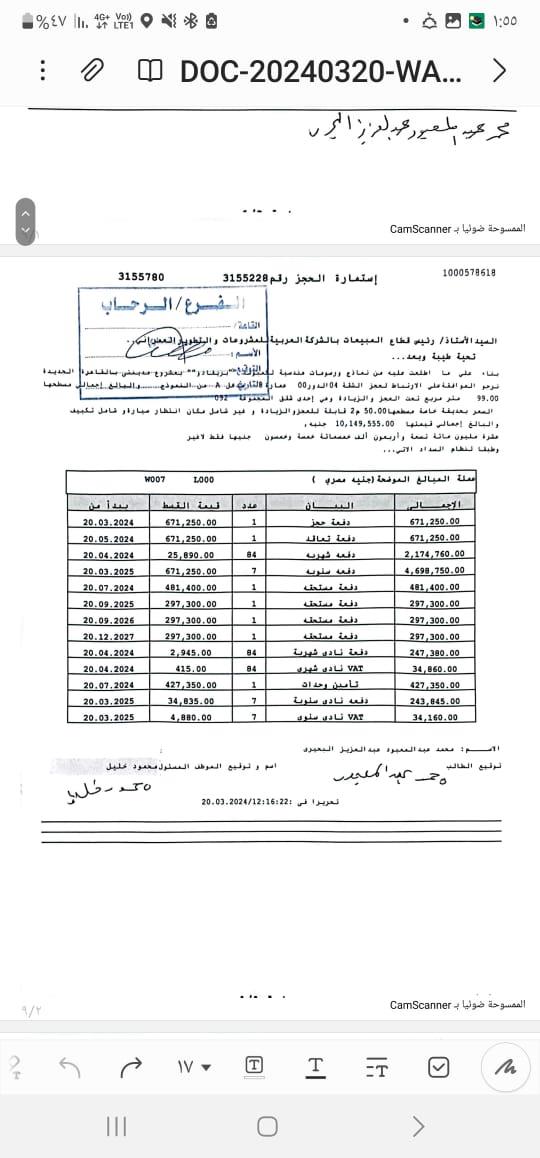 %٤٧ 4G+ Vo)) LTE1 ١:٥٥
DOC-20240320-WA...
محمد عبد المعبود عبدالعزيز البحيرى
الممسوحة ضوئيا بـ CamScanner
1000578618 إستمارة الحجز رقم 3155228 3155780
الفرع/الرحاب
القاعة/
الأسم:
التوقيع:
التاريخ:
السيد الأستاذ/ رئيس قطاع المبيعات بالشركة العربية للمشروعات والتطوير العمرانى..
تحية طيبة وبعد...
بناء على ما اطلعت عليه من نماذج ورسومات هندسية بمشروع مدينتى بالقاهرة الجديدة
نرجو الموافقة على الارتباط لحجز الشقة 04 الدور 00 عمارة A من النموذج والبالغ إجمالى مسطحها
99.00 متر مربع تحت العجز والزيادة وهي إحدى شقق المجموعة 092
السعر بحديقة خاصة مسطحها 50.00 م2 قابلة للعجز والزيادة و غير شامل مكان انتظار سيارة و شامل تكييف
والبالغ إجمالي قيمتها 10,149,555.00 جنيه,
عشرة مليون مائة تسعة و أربعون ألف خمسمائة خمسة وخمسون جنيها فقط لاغير
وطبقا لنظام السداد الاتى...
عملة المبالغ الموضحة (جنيه مصري ) L000 W007
الاجمالى البيان عدد قيمة القسط يبدأ من
671,250.00 دفعة حجز 1 671,250.00 20.03.2024
671,250.00 دفعة تعاقد 1 671,250.00 20.05.2024
2,174,760.00 دفعه شهرية 84 25,890.00 20.04.2024
4,698,750.00 دفعه سنوية 7 671,250.00 20.03.2025
481,400.00 دفعة مستحقه 1 481,400.00 20.07.2024
297,300.00 دفعة مستحقه 1 297,300.00 20.09.2025
297,300.00 دفعة مستحقه 1 297,300.00 20.09.2026
297,300.00 دفعة مستحقه 1 297,300.00 20.12.2027
247,380.00 دفعة نادى شهرية 84 2,945.00 20.04.2024
34,860.00 VAT نادى شهرى 84 415.00 20.04.2024
427,350.00 تأمين وحدات 1 427,350.00 20.07.2024
243,845.00 دفعه نادى سنوية 7 34,835.00 20.03.2025
34,160.00 VAT نادى سنوى 7 4,880.00 20.03.2025
الاســـم: محمد عبدالمعبود عبدالعزيز البحيرى
توقيع الطالب اسم و توقيع الموظف المسئول محمود خليل
محمد عبد المعبود
محمود خليل
تحريرا فى :20.03.2024/12:16:22
الممسوحة ضوئيا بـ CamScanner
٩/٢
١٧